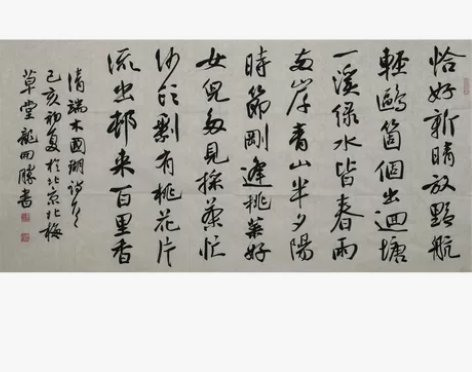 恰好新晴放野航
輕鷗箇個出迴塘
一溪綠水皆春雨
兩岸青山半夕陽
時節剛逢挑菜好
女兒多見採茶忙
沙頭剩有桃花片
流出邨来百里香
清端木國瑚詩
己亥初夏於北京北梅
草堂龍四勝書